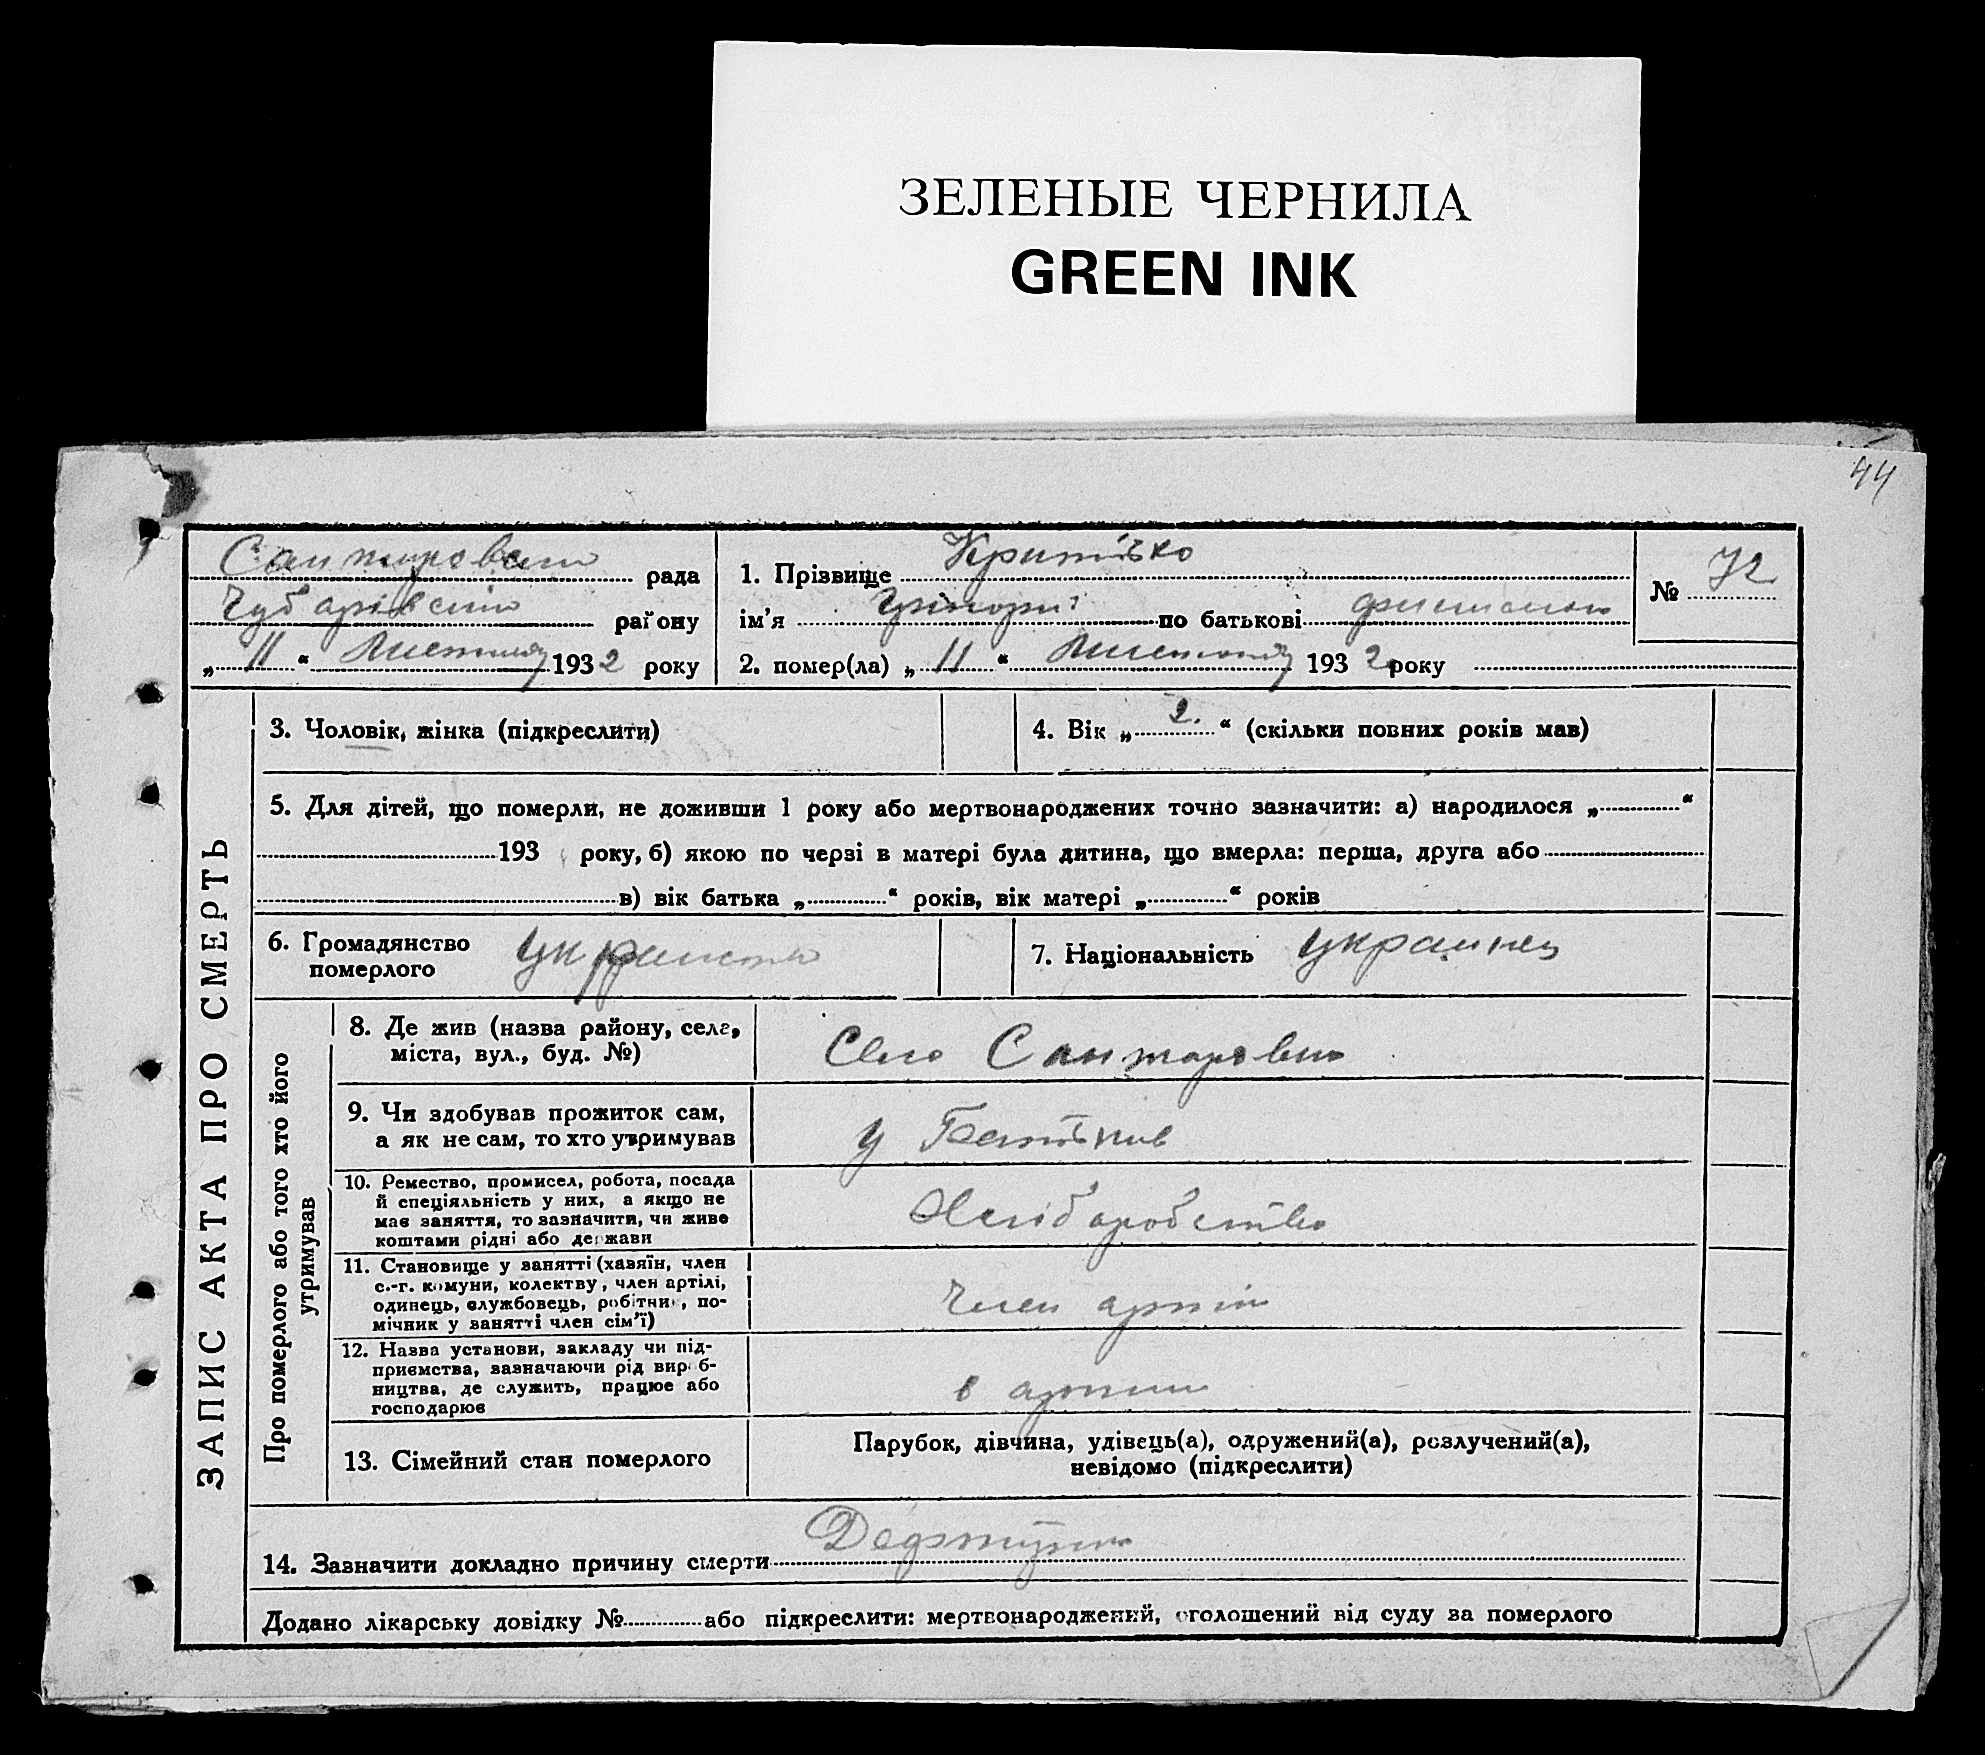 ЗЕЛЕНЫЕ ЧЕРНИЛА
GREEN INK
44
рада
району
„ 11 “ 1932 року
1. Прізвище
ім'я по батькові
2. помер(ла) „ 11 “ 1932 року
№ 72
ЗАПИС АКТА ПРО СМЕРТЬ
3. Чоловік, жінка (підкреслити)
4. Вік „ 2. “ (скільки повних років мав)
5. Для дітей, що померли, не доживши 1 року або мертвонароджених точно зазначити: а) народилося „ “
193 року, б) якою по черзі в матері була дитина, що вмерла: перша, друга або
в) вік батька „ “ років, вік матері „ “ років
6. Громадянство
померлого
7. Національність украинец
Про померлого або того хто його
утримував
8. Де жив (назва району, села,
міста, вул., буд. №)
Село
9. Чи здобував прожиток сам,
а як не сам, то хто утримував
у Батьків
10. Ремество, промисел, робота, посада
й спеціяльність у них, а якщо не
має заняття, то зазначити, чи живе
коштами рідні або держави
Хліборобство
11. Становище у занятті (хазяїн, член
с.-г. комуни, колектву, член артілі,
одинець, службовець, робітник, по-
мічник у занятті член сім'ї)
Член артіли
12. Назва установи, закладу чи під-
приємства, зазначаючи рід вироб-
ництва, де служить, працює або
господарює
в артили
13. Сімейний стан померлого
Парубок, дівчина, удівець(а), одружений(а), розлучений(а),
невідомо (підкреслити)
14. Зазначити докладно причину смерти
Додано лікарську довідку № або підкреслити: мертвонароджений, оголошений від суду за померлого